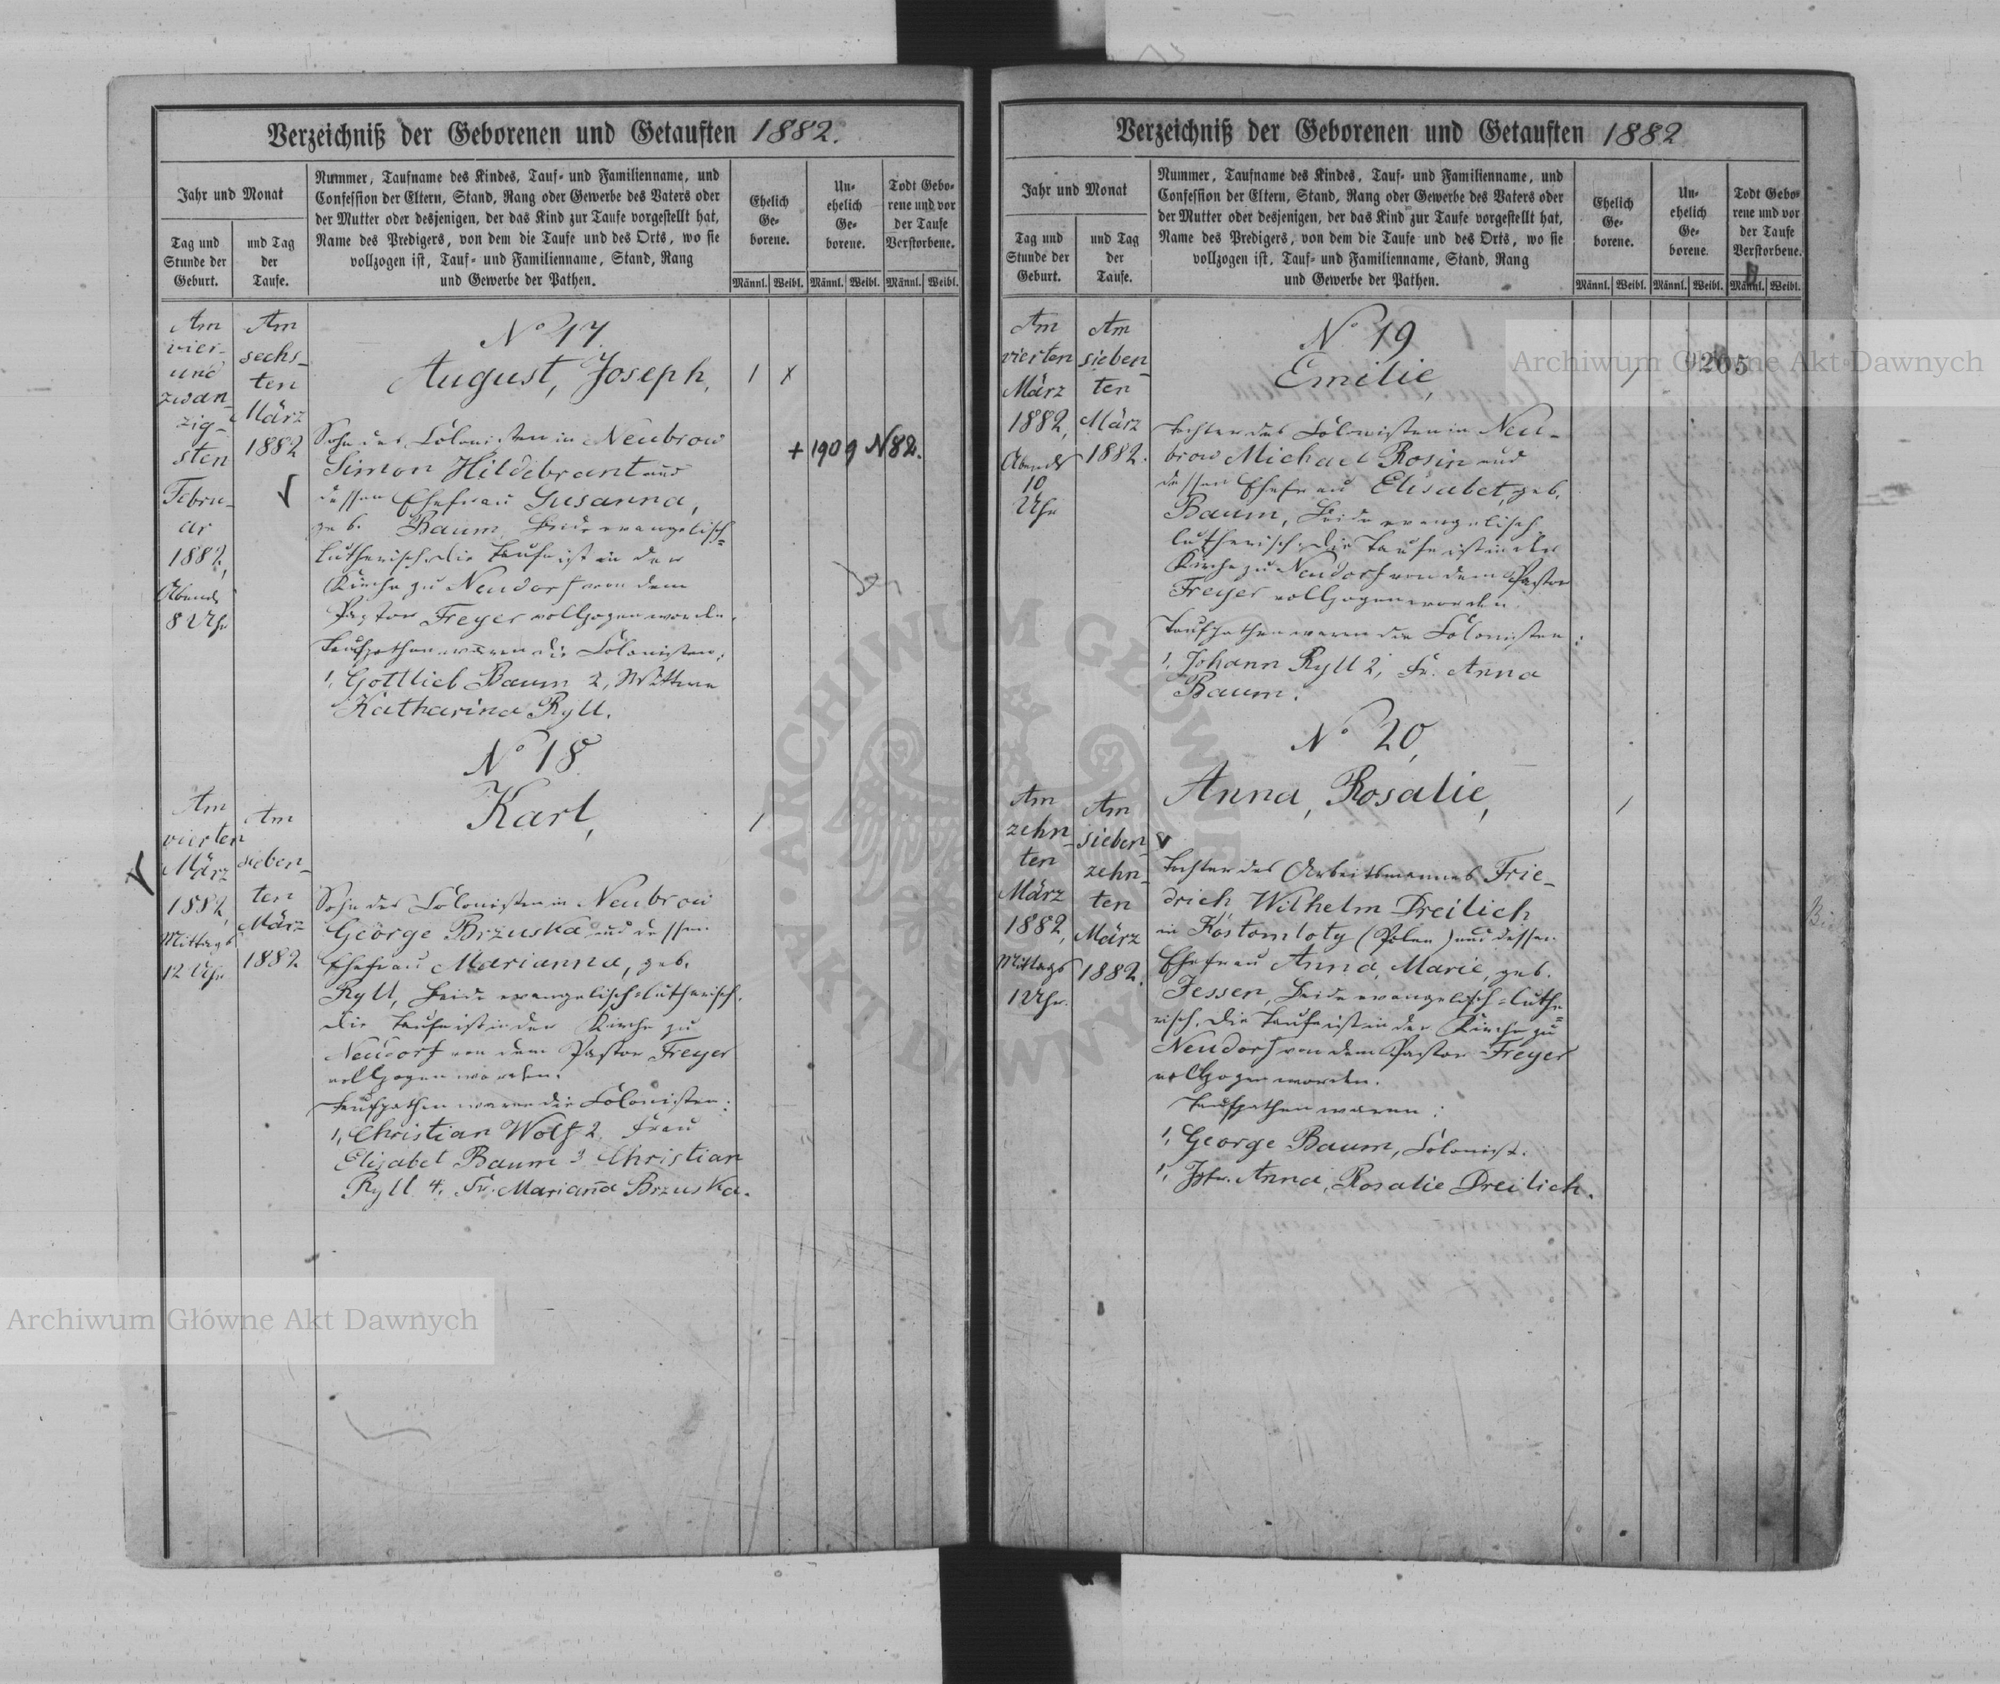 Verzeichniß der Geborenen und Getauften 1882.
Jahr und Monat
Tag und
Stunde der
Geburt.
und Tag
der
Taufe.
Nummer, Taufname des Kindes, Tauf- und Familienname, und
Confession der Eltern, Stand, Rang oder Gewerbe des Vaters oder
der Mutter oder desjenigen, der das Kind zur Taufe vorgestellt hat,
Name des Predigers, von dem die Taufe und des Orts, wo sie
vollzogen ist, Tauf- und Familienname, Stand, Rang
und Gewerbe der Pathen.
Ehelich
Ge-
borene.
Un-
ehelich
Ge-
borene.
Todt Gebo-
rene und vor
der Taufe
Verstorbene.
Männl. Weibl. Männl. Weibl. Männl. Weibl.
Am
vier-
und
zwan-
zig-
sten
Febru-
ar
1882,
Abends
8 Uhr
Am
sechs-
ten
März
1882
No 17.
August, Joseph,
1 x
+ 1909 N 82.
Sohn des Colonisten in Neubrow
Simon Hildebrant und
dessen Ehefrau Susanna,
geb. Baum, Beide evangelisch=
lutherisch. Die Taufe ist in der
Kirche zu Neudorf von dem
Pastor Freyer vollzogen worden.
Taufpathen waren die Colonisten:
1, Gottlieb Baum 2, Wittwe
Katharina Ryll.
Am
vierten
März
1882,
Mittags
12 Uhr
Am
sieben-
ten
März
1882
No 18
Karl,
1
Sohn des Colonisten in Neubrow
George Brzuska und dessen
Ehefrau Marianna, geb.
Ryll, Beide evangelisch=lutherisch.
Die Taufe ist in der Kirche zu
Neudorf von dem Pastor Freyer
vollzogen worden.
Taufpathen waren die Colonisten:
1, Christian Wolf 2, Frau
Elisabet Baum 3 Christian
Ryll 4, Fr. Marianna Brzuska.
Verzeichniß der Geborenen und Getauften 1882
Jahr und Monat
Tag und
Stunde der
Geburt.
und Tag
der
Taufe.
Nummer, Taufname des Kindes, Tauf- und Familienname, und
Confession der Eltern, Stand, Rang oder Gewerbe des Vaters oder
der Mutter oder desjenigen, der das Kind zur Taufe vorgestellt hat,
Name des Predigers, von dem die Taufe und des Orts, wo sie
vollzogen ist, Tauf- und Familienname, Stand, Rang
und Gewerbe der Pathen.
Ehelich
Ge-
borene.
Un-
ehelich
Ge-
borene.
Todt Gebo-
rene und vor
der Taufe
Verstorbene.
Männl. Weibl. Männl. Weibl. Männl. Weibl.
Am
vierten
März
1882,
Abends
10
Uhr
Am
sieben-
ten
März
1882.
No 19
Emilie,
1
265
Tochter des Colonisten in Neu-
brow Michael Rosin und
dessen Ehefrau Elisabet, geb.
Baum, Beide evangelisch-
lutherisch. Die Taufe ist in der
Kirche zu Neudorf von dem Pastor
Freyer vollzogen worden.
Taufpathen waren die Colonisten:
1, Johann Ryll 2, Fr. Anna
Baum.
Am
zehn-
ten
März
1882,
Mittags
1 Uhr.
Am
sieben-
zehn-
ten
März
1882.
No 20,
Anna, Rosalie,
1
Tochter des Arbeitsmannes Frie-
drich Wilhelm Dreilich
in Kostomloty (Polen) und dessen
Ehefrau Anna, Marie, geb.
Jessen, Beide evangelisch=luthe=
risch. Die Taufe ist in der Kirche zu
Neudorf von dem Pastor Freyer
vollzogen worden.
Taufpathen waren:
1, George Baum, Colonist.
1, Jgfr. Anna, Rosalie Dreilich.
Archiwum Główne Akt Dawnych
Archiwum Główne Akt Dawnych
ARCHIWUM GŁÓWNE AKT DAWNYCH